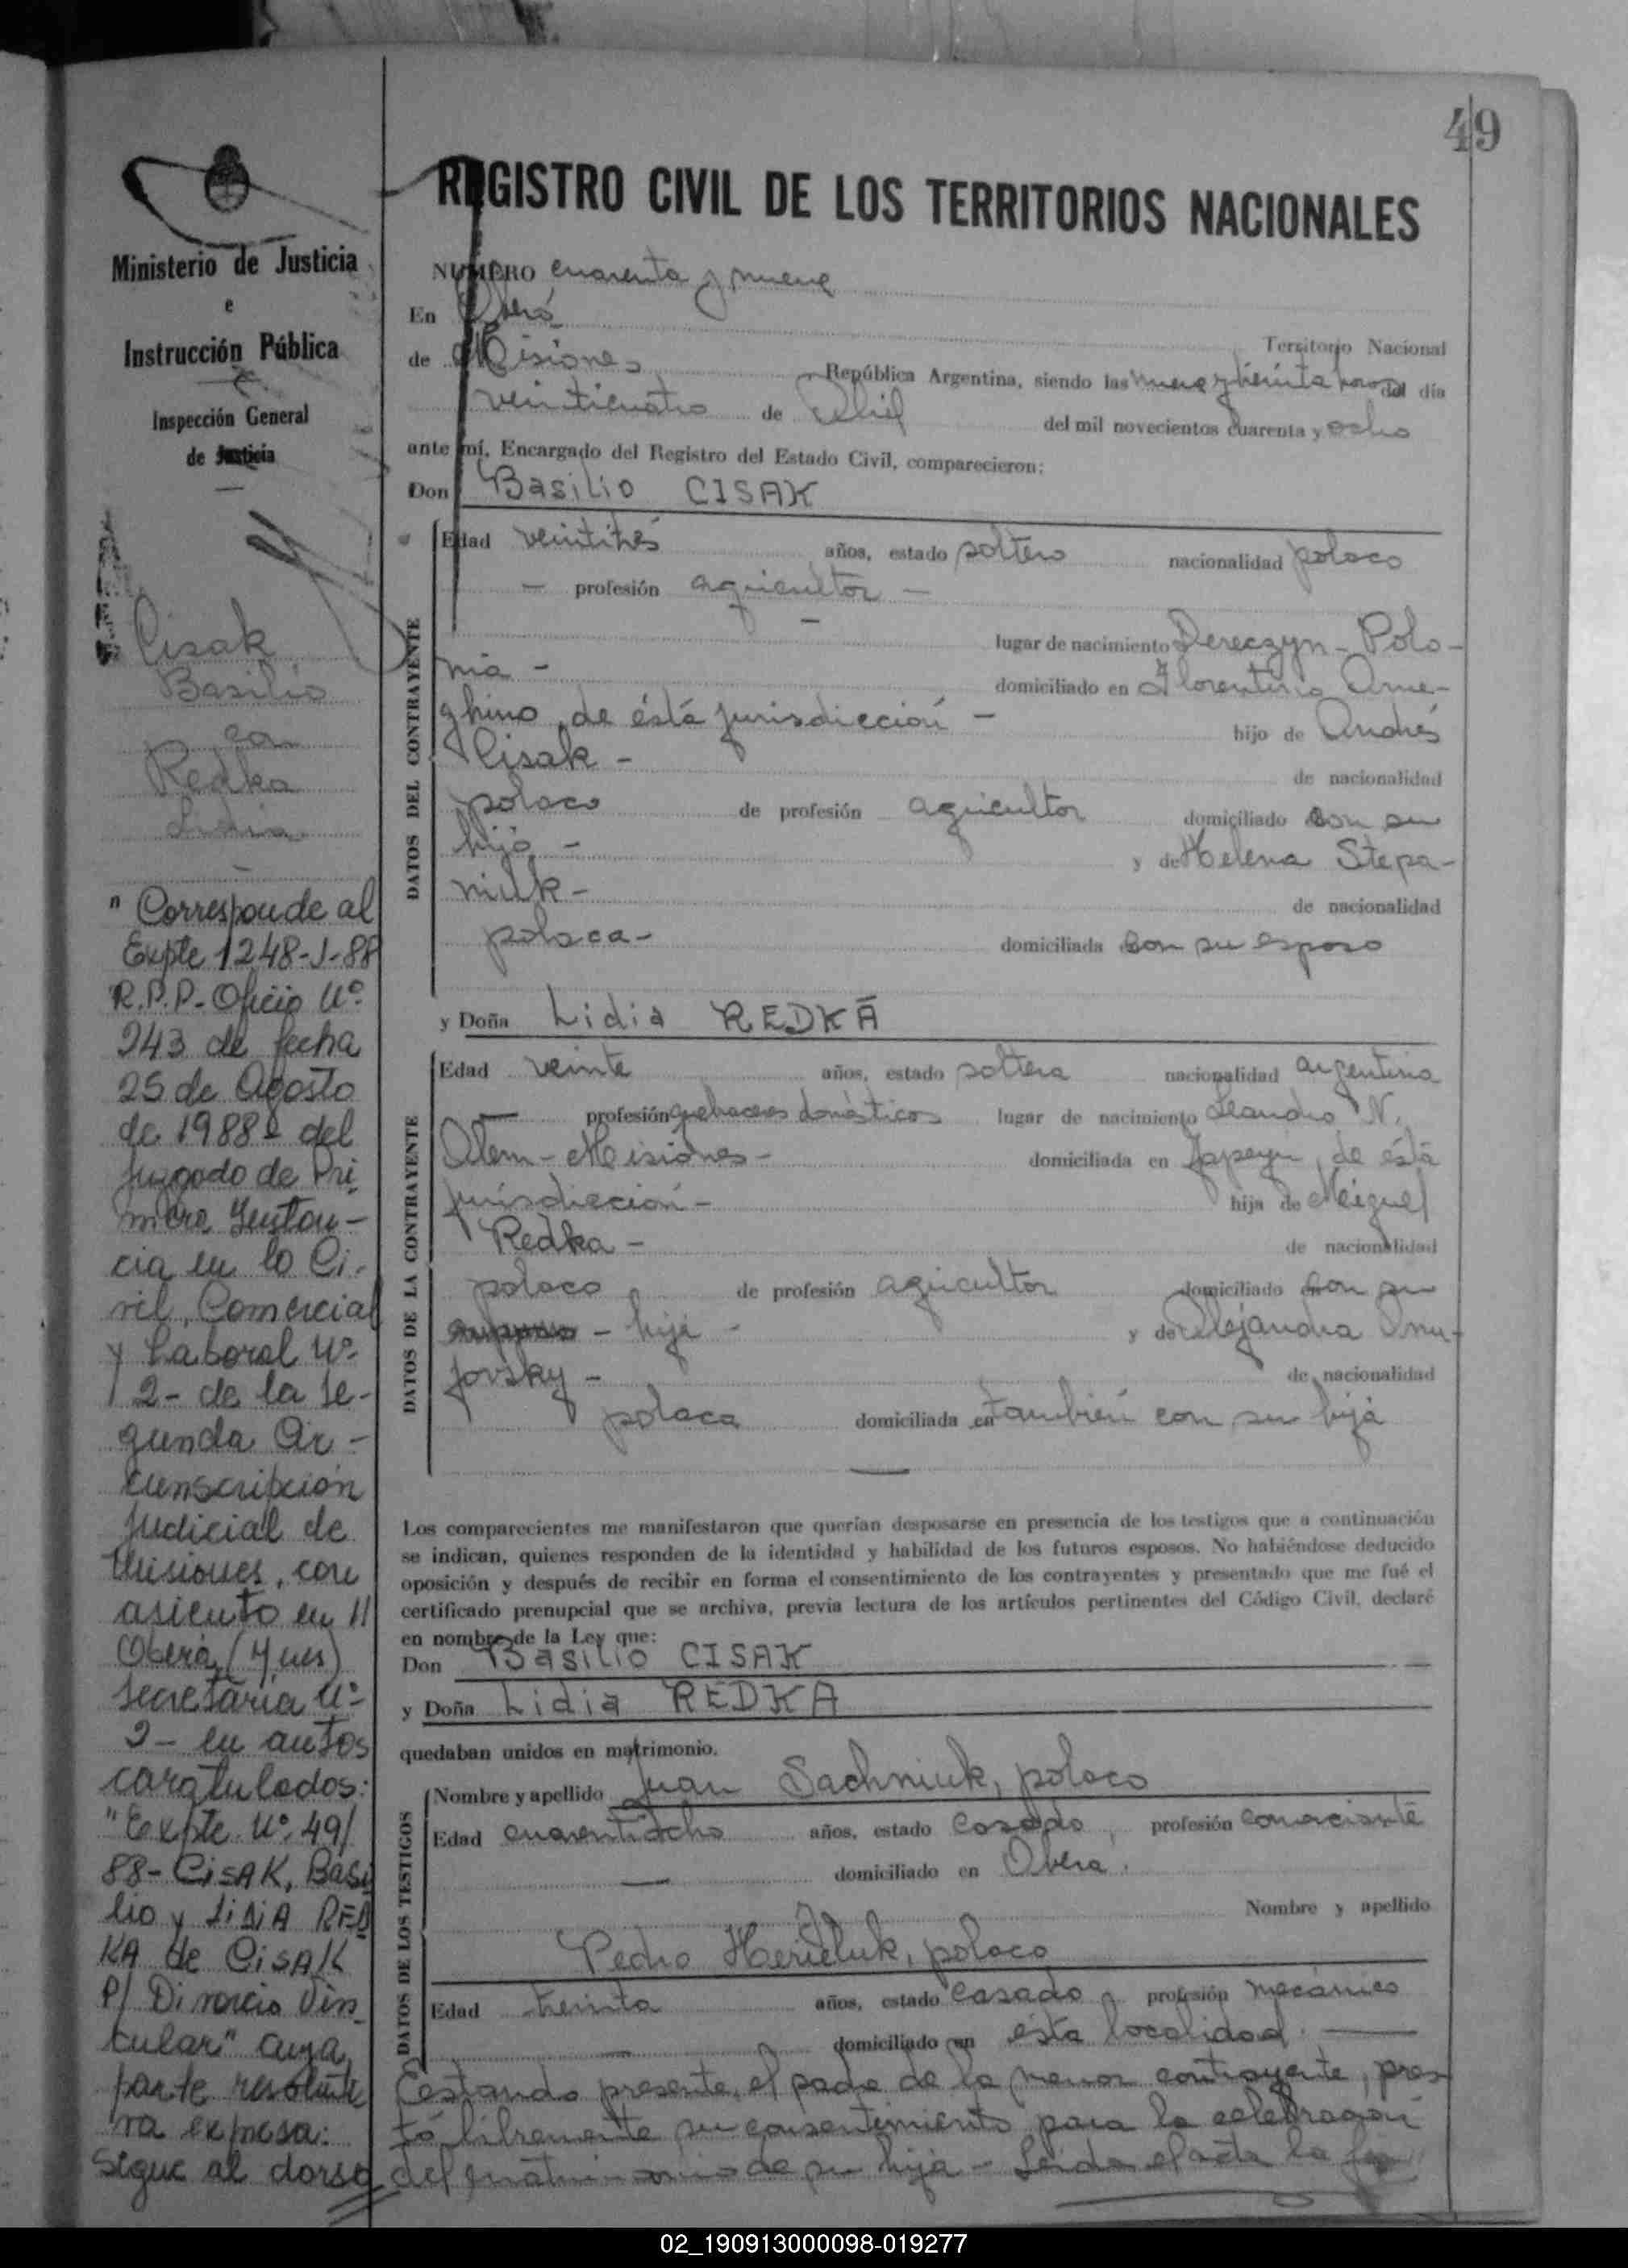 49
Ministerio de Justicia
e
Instrucción Pública
Inspección General
de Justicia
Cisak
Basilio
con
Redka
Lidia
" Corresponde al
Expte 1248-J-88
R.P.P- Oficio Nº
243 de fecha
25 de Agosto
de 1988 del
Juzgado de Pri-
mera Instan-
cia en lo Ci-
vil, Comercial
y Laboral Nº
2- de la Se-
gunda Cir-
cunscripción
Judicial de
Misiones, con
asiento en
Oberá (Mnes)
Secretaría Nº
2- en autos
caratulados:
"Expte Nº 49/
88- CISAK, Basi
lio y LIDIA RED
KA de CISAK
P/ Divorcio Vin
cular" cuya
parte resoluti
va expresa:
Sigue al dorso
REGISTRO CIVIL DE LOS TERRITORIOS NACIONALES
NUMERO cuarenta y nueve
En Oberá
Territorio Nacional
de Misiones República Argentina, siendo las nueve y treinta horas del día
veinticuatro de Abril del mil novecientos cuarenta y ocho
ante mí, Encargado del Registro del Estado Civil, comparecieron:
Don Basilio CISAK
DATOS DEL CONTRAYENTE
Edad veintitrés años, estado soltero nacionalidad polaco
- profesión agricultor -
lugar de nacimiento Dereczyn - Polo-
nia - domiciliado en Florentino Ame-
ghino, de ésta jurisdicción - hijo de Andrés
Cisak - de nacionalidad
polaco de profesión agricultor domiciliado con su
hijo - y de Helena Stepa-
niuk - de nacionalidad
polaca - domiciliada con su esposo
y Doña Lidia REDKA
DATOS DE LA CONTRAYENTE
Edad veinte años, estado soltera nacionalidad argentina
- profesión quehaceres domésticos lugar de nacimiento Leandro N.
Alem - Misiones - domiciliada en Yapeyú, de ésta
jurisdicción - hija de Miguel
Redka - de nacionalidad
polaco de profesión agricultor domiciliado con su
- hija - y de Alejandra Onu-
fovsky - de nacionalidad
polaca domiciliada en también con su hija
Los comparecientes me manifestaron que querían desposarse en presencia de los testigos que a continuación
se indican, quienes responden de la identidad y habilidad de los futuros esposos. No habiéndose deducido
oposición y después de recibir en forma el consentimiento de los contrayentes y presentado que me fué el
certificado prenupcial que se archiva, previa lectura de los artículos pertinentes del Código Civil, declaré
en nombre de la Ley que:
Don Basilio CISAK
y Doña Lidia REDKA
quedaban unidos en matrimonio.
DATOS DE LOS TESTIGOS
Nombre y apellido Juan Sachniuk, polaco
Edad cuarentiocho años, estado casado, profesión comerciante
domiciliado en Oberá.
Nombre y apellido
Pedro polaco
Edad treinta años, estado casado, profesión mecánico
domiciliado en ésta localidad.
Estando presente el padre de la menor contrayente, pres
tó libremente su consentimiento para la celebración
del matrimonio de su hija - Leída el acta la
02_190913000098-019277